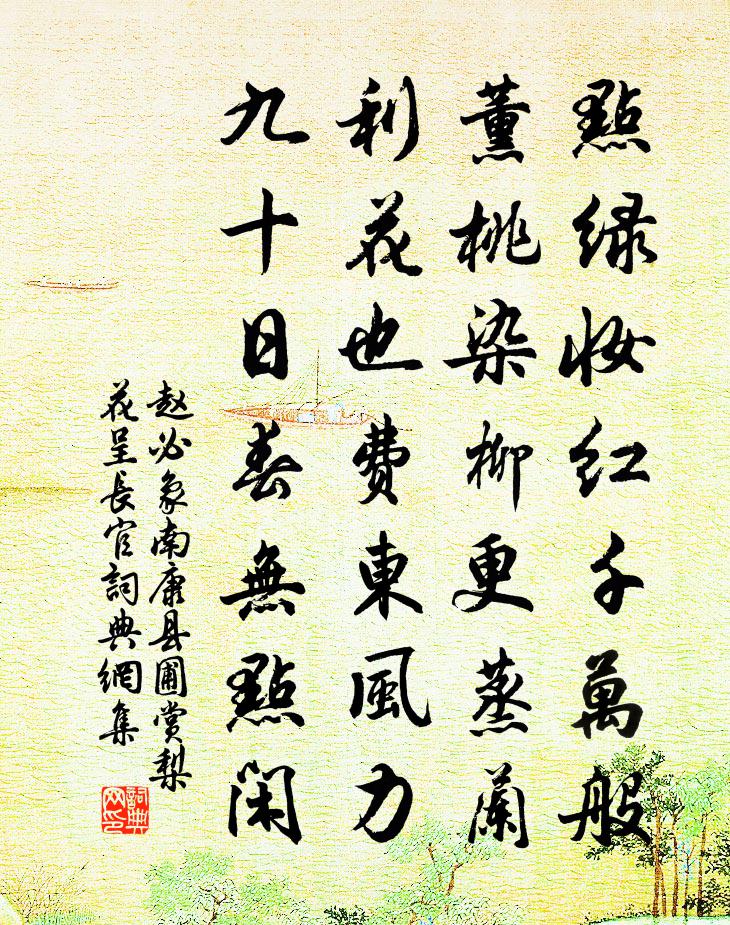 點緑妝紅千萬般
薰桃染柳更蒸蘭
利花也費東風力
九十日春無點闲
赵必象南康县圃赏梨
花呈長官詞典網集
詞典
网印